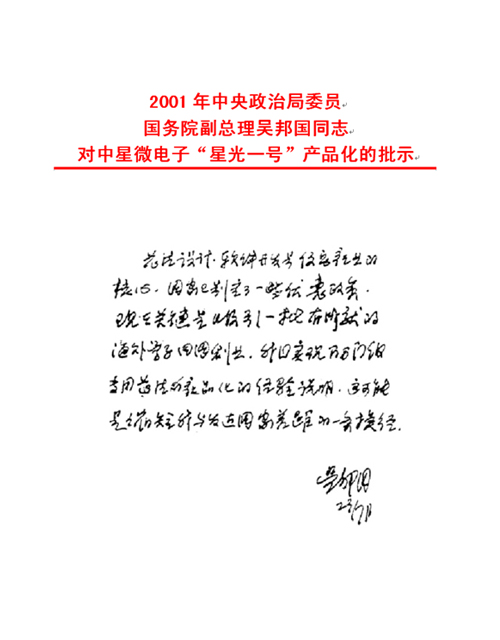 2001年中央政治局委员
国务院副总理吴邦国同志
对中星微电子“星光一号”产品化的批示
芯片设计、软件开发是信息产业的
核心。国家已制定了一些优惠政策,
现在关键是吸引一批有所成就的
海外学子回国创业。
专用芯片的产品化的经验说明,这可能
是缩短与发达国家差距的一条捷径。
吴邦国